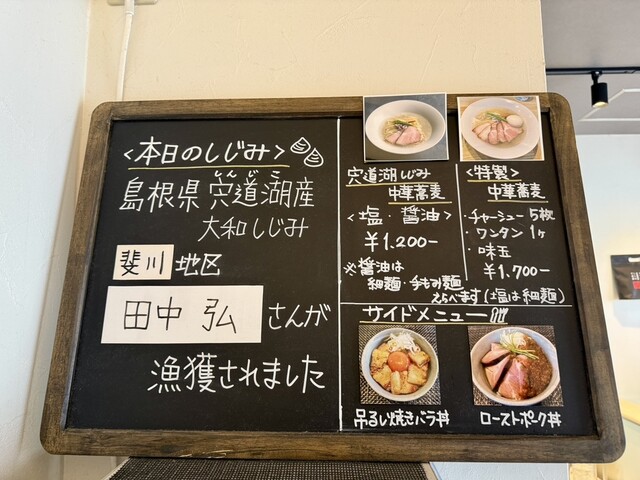 <本日のしじみ>
しんじこ
島根県 宍道湖産
大和しじみ
斐川 地区
田中 弘 さんが
漁獲されました
宍道湖しじみ
中華蕎麦
<塩・醤油>
¥1,200-
※醤油は
細麺・手もみ麺
えらべます(塩は細麺)
<特製>
中華蕎麦
・チャーシュー5枚
・ワンタン1ヶ
・味玉
¥1,700-
サイドメニュー
吊るし焼きバラ丼
ローストポーク丼